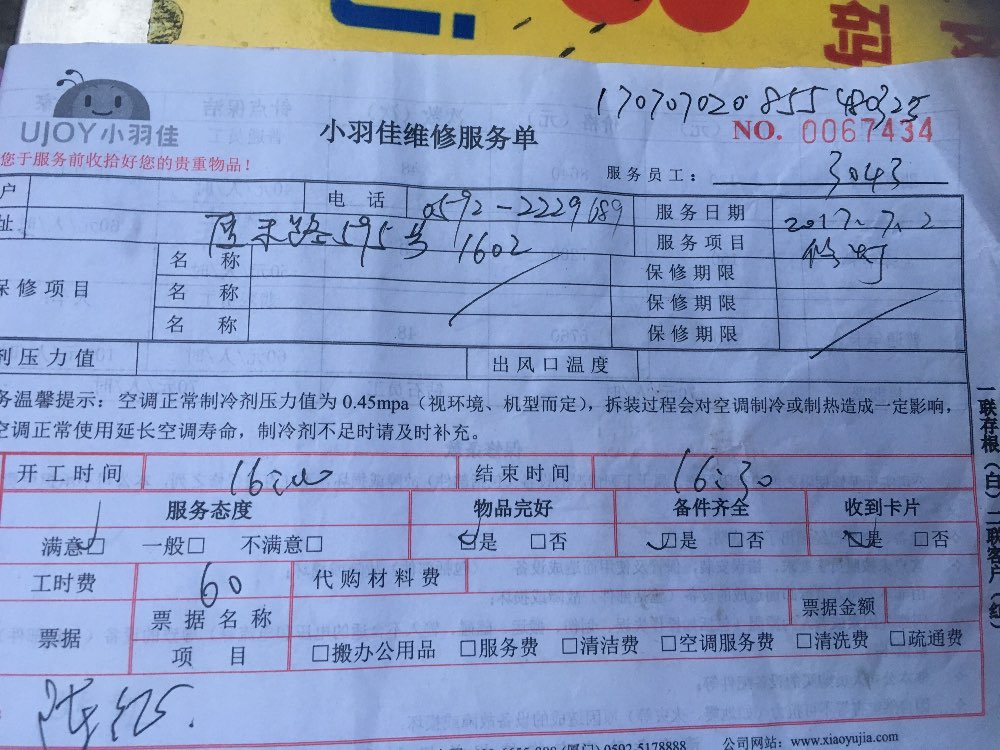 码
170707020855480325
UJOY小羽佳
小羽佳维修服务单
NO. 0067434
您于服务前收拾好您的贵重物品！
服务员工： 3043
户 电 话 0592-2229689 服务日期 2017.7.2
址 595号 1602 服务项目
保修项目 名 称 保修期限
名 称 保修期限
名 称 保修期限
剂压力值 出风口温度
务温馨提示：空调正常制冷剂压力值为 0.45mpa（视环境、机型而定），拆装过程会对空调制冷或制热造成一定影响，
空调正常使用延长空调寿命，制冷剂不足时请及时补充。
开工时间 16:00 结束时间 16:30
服务态度 物品完好 备件齐全 收到卡片
满意□ 一般□ 不满意□ □是 □否 □是 □否 □是 □否
工时费 60 代购材料费
票据 票据名称 票据金额
项 目 □搬办公用品 □服务费 □清洁费 □空调服务费 □清洗费 □疏通费
一联存根（白）二联客户（红）
(厦门) 0592-5178888 公司网站：www.xiaoyujia.com